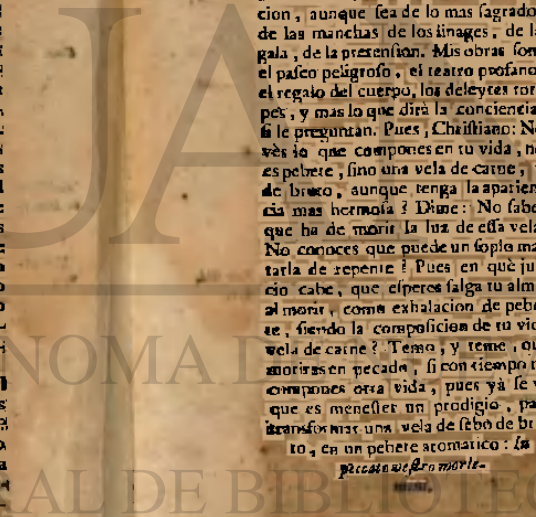 cion, aunque ſea de lo mas ſagrado
de las manchas de los linages, de l
gala, de la pretenſion. Mis obras ſon
el paſeo peligroſo, el teatro profano
el regalo del cuerpo, los deleytes tor
pes, y mas lo que dirà la conciencia
ſi le preguntan. Pues, Chriſtiano: N
vès ſo que compones en tu vida, n
es pebete, ſino una vela de carne,
de bruto, aunque tenga la aparien
cia mas hermoſa? Dime: No ſabe
que ha de morir la luz de eſſa vela
No conoces que puede un ſoplo ma
tarla de repente? Pues en què ju
cio cabe, que eſperes ſalga tu alm
al morir, como exhalacion de pebe
te, ſiendo la compoſicion de tu vid
vela de carne? Temo, y teme, qu
morirás en pecado, ſi con tiempo n
compones otra vida, pues yà ſe v
que es meneſter un prodigio, pa
transformar una vela de ſebo de bru
to, en un pebete aromatico: In
peccato veſtro morie-
mini.
UA
NOMA D
AL DE BIBLIOTEC